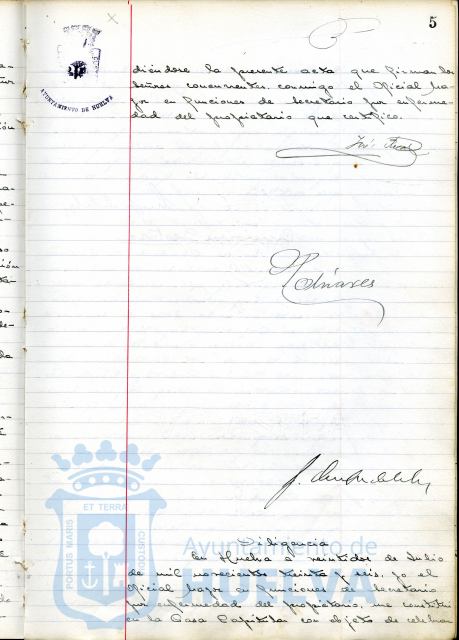 5
AYUNTAMIENTO DE HUELVA
diéndose la presente acta que firman los
señores concurrentes conmigo el Oficial Ma-
yor en funciones de Secretario por enferme-
dad del propietario que certifico.
José
Diligencia
En Huelva a veintidos de Julio
de mil novecientos treinta y seis, yo el
Oficial Mayor en funciones de Secretario
por enfermedad del propietario, me constitui
en la Casa Capitular con objeto de celebrar
Ayuntamiento de
HUELVA
PORTUS MARIS ET TERRAE CUSTODIA